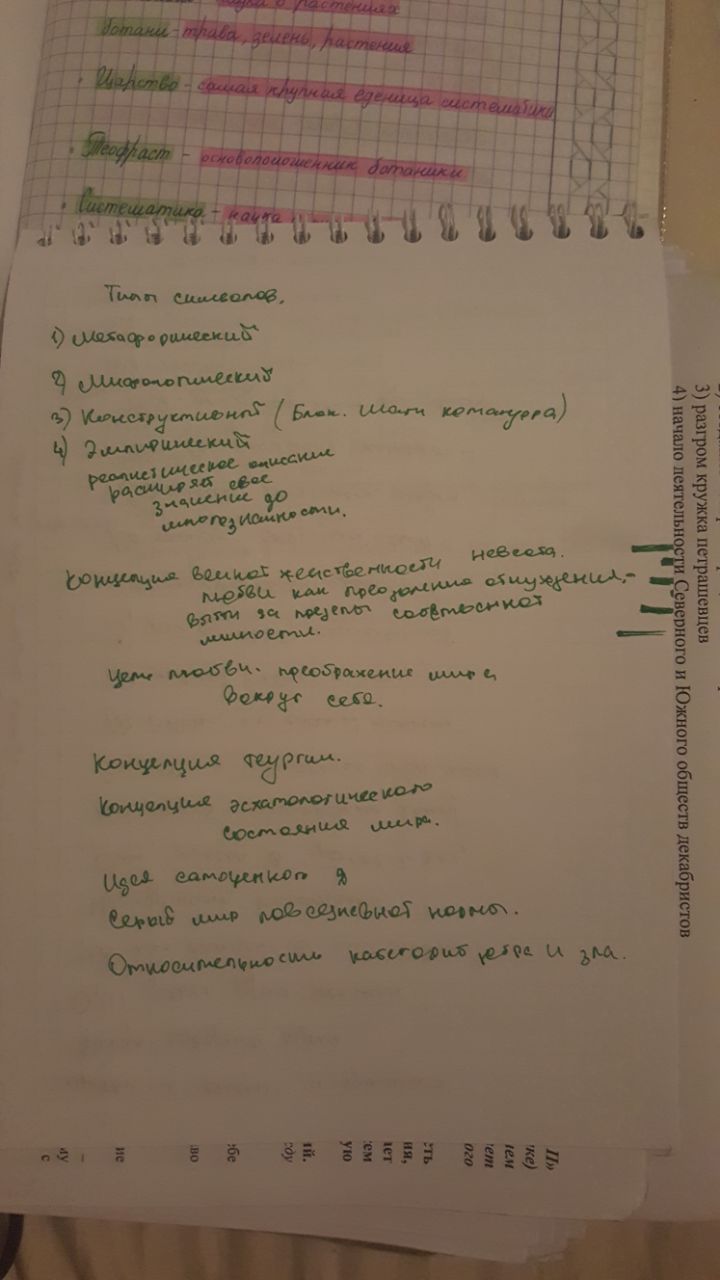 ботани - трава, зелень, растения
• Царство - самая крупная еденица систематики
• Теофраст - основоположенник ботаники
• Систематика - наука
Типы символов.
1) Метафорический
2) Мифологический
3) Конструктивный (Блок. Шаги командора)
4) Эмпирический
реалистическое описание
расширяя свое
значение до
многозначности.
Концепция вечной женственности невеста.
любви как преодоления отчуждения, -
выйти за пределы собственной
личности.
Цель любви. преображение мира
вокруг себя.
Концепция теургии.
Концепция эсхатологического
состояния мира.
Идея самоценного я
Серый мир повседневной нормы.
Относительность категорий добра и зла.
3) разгром кружка петрашевцев
4) начало деятельности Северного и Южного обществ декабристов